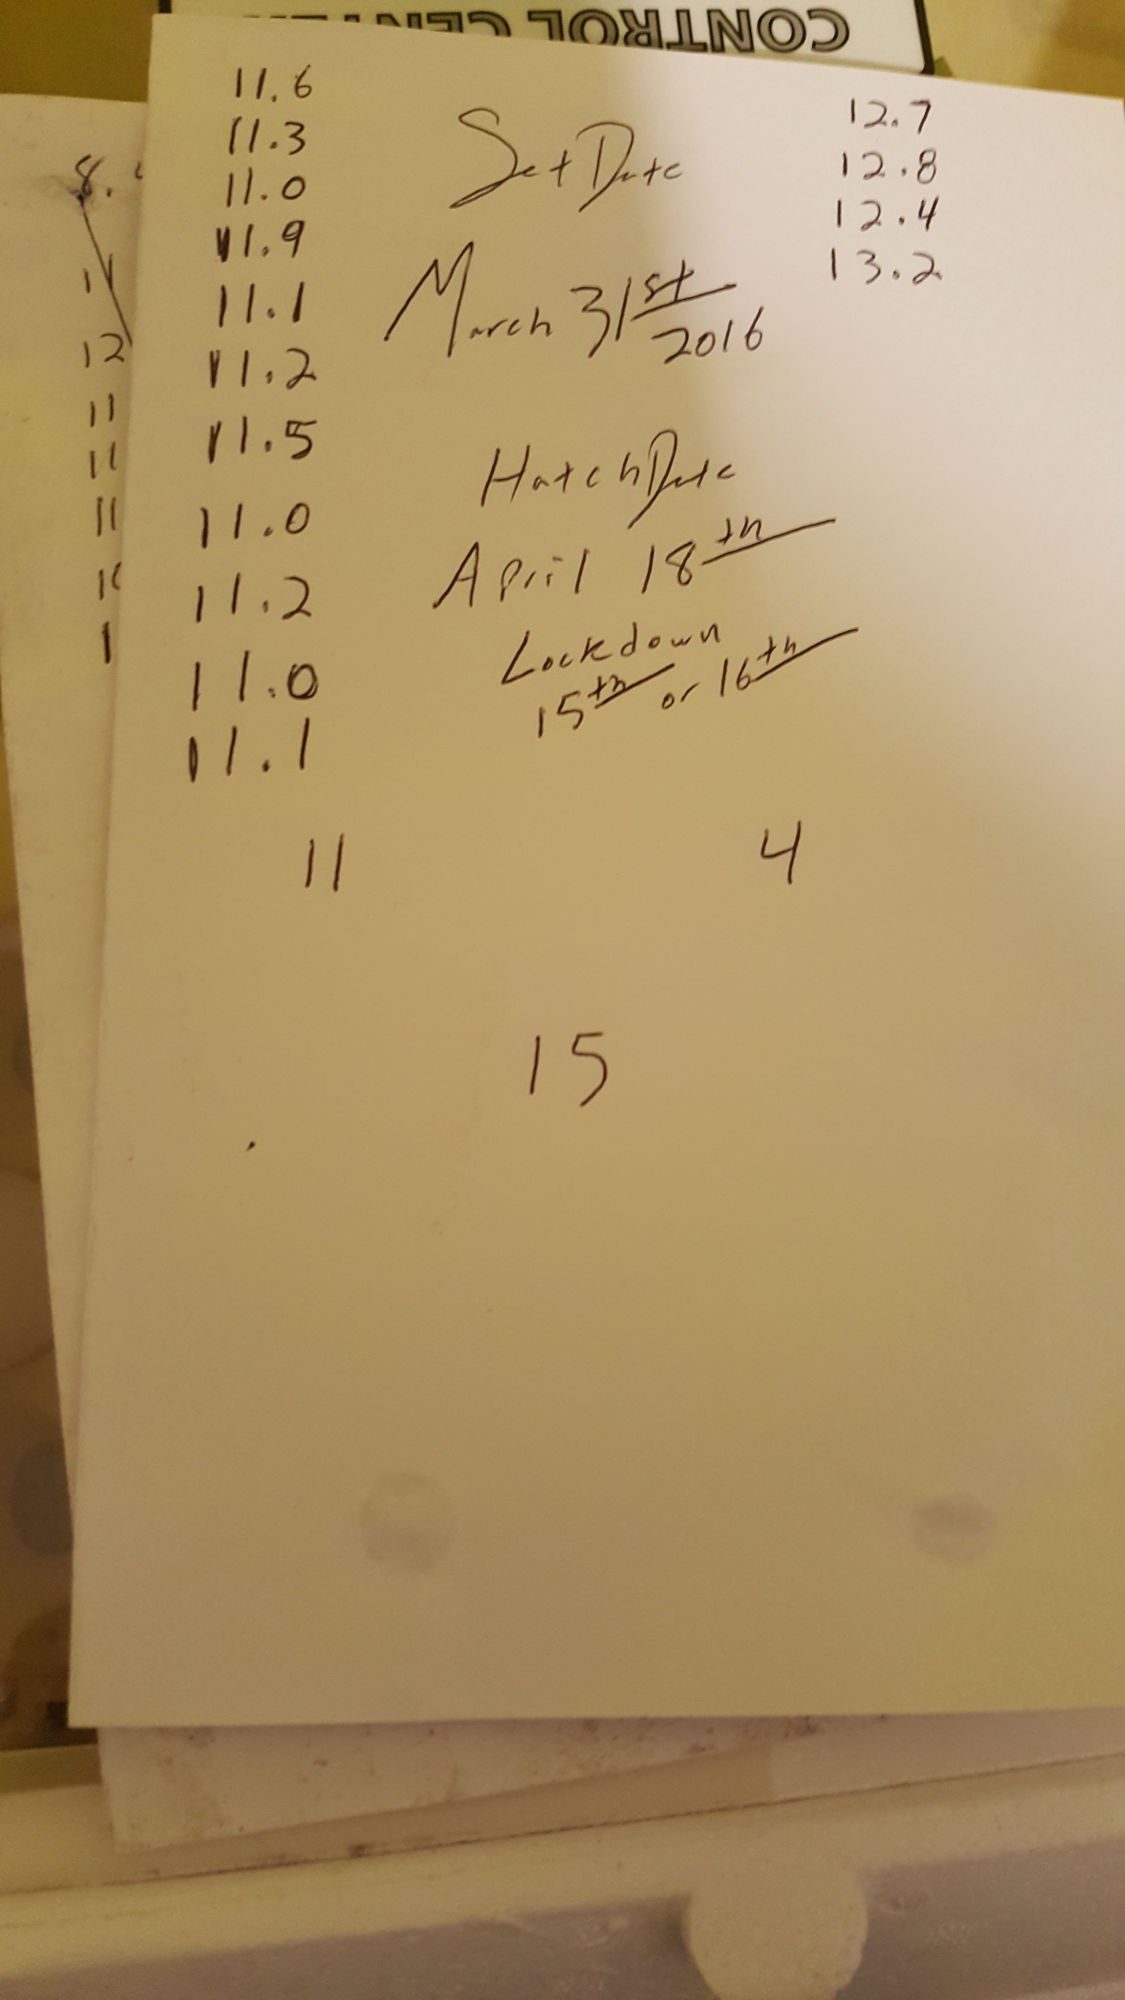 CONTROL CENTER
11.6
11.3
11.0
11.9
11.1
11.2
11.5
11.0
11.2
11.0
11.1
11
Set Date
March 31st
2016
Hatch Date
April 18th
Lockdown
15th or 16th
12.7
12.8
12.4
13.2
4
15
8.
11
12
11
11
11